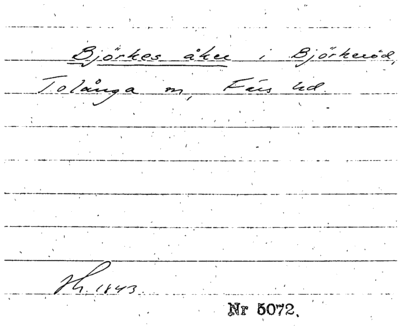 Björkes åker i Björkeröd,
Tolånga sn, Färs hd.
1843.
Nr 5072.